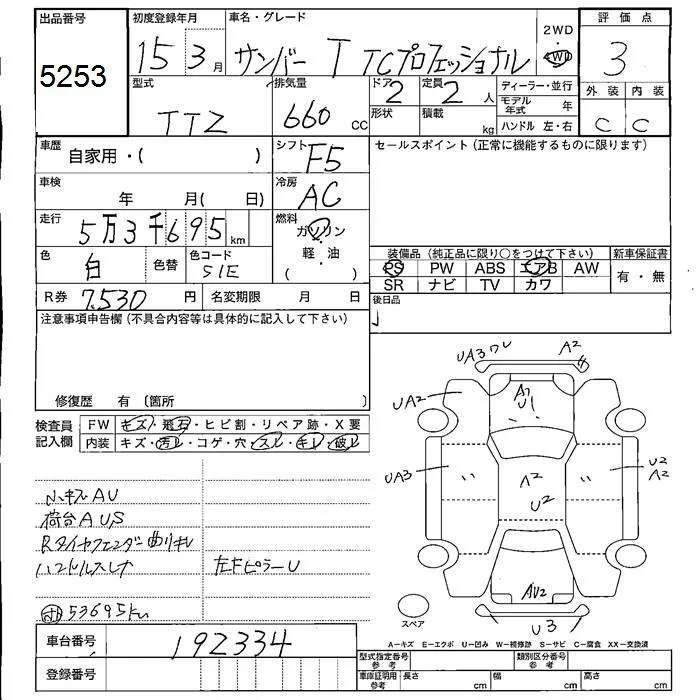 出品番号 初度登録年月 車名・グレード 2WD 評価点
5253 15 3月 サンバー T TCプロフェッショナル 4WD 3
型式 排気量 ドア 2 定員 2人 ディーラー・並行 外装 内装
TT2 660cc 形状 積載 kg モデル年式 年 C C
ハンドル 左・右
車歴 自家用・( ) シフト F5 セールスポイント(正常に機能するものに限ります)
車検 年 月( 日) 冷房 AC
走行 5万3千695km 燃料 ガソリン
軽・油
( )
色 白 色替 色コード 51E
装備品(純正品に限り○をつけて下さい) 新車保証書
PS PW ABS エアB AW 有・無
SR ナビ TV カワ
R券 7,530円 名変期限 月 日 後日品
注意事項申告欄(不具合内容等は具体的に記入して下さい)
修復歴 有 〔箇所 〕
検査員記入欄 FW キズ・飛石・ヒビ割・リペア跡・X要
内装 キズ・汚レ・コゲ・穴・スレ・キレ・破レ
UA3 ワレ A2
UA2 A1 U1
UA3 A2 U2 U2 A2
AU2
U3
小キズAU
荷台AUS
Rタイヤフェンダー曲リキレ
ハンドルスレ 左Fピラー U
53695km
スペア
A−キズ E−エクボ U−凹み W−補修跡 S−サビ C−腐食 XX−交換済
車台番号 192334
登録番号
型式指定番号 参考 類別区分番号 参考
車庫証明用 参考 長さ cm 幅 cm 高さ cm